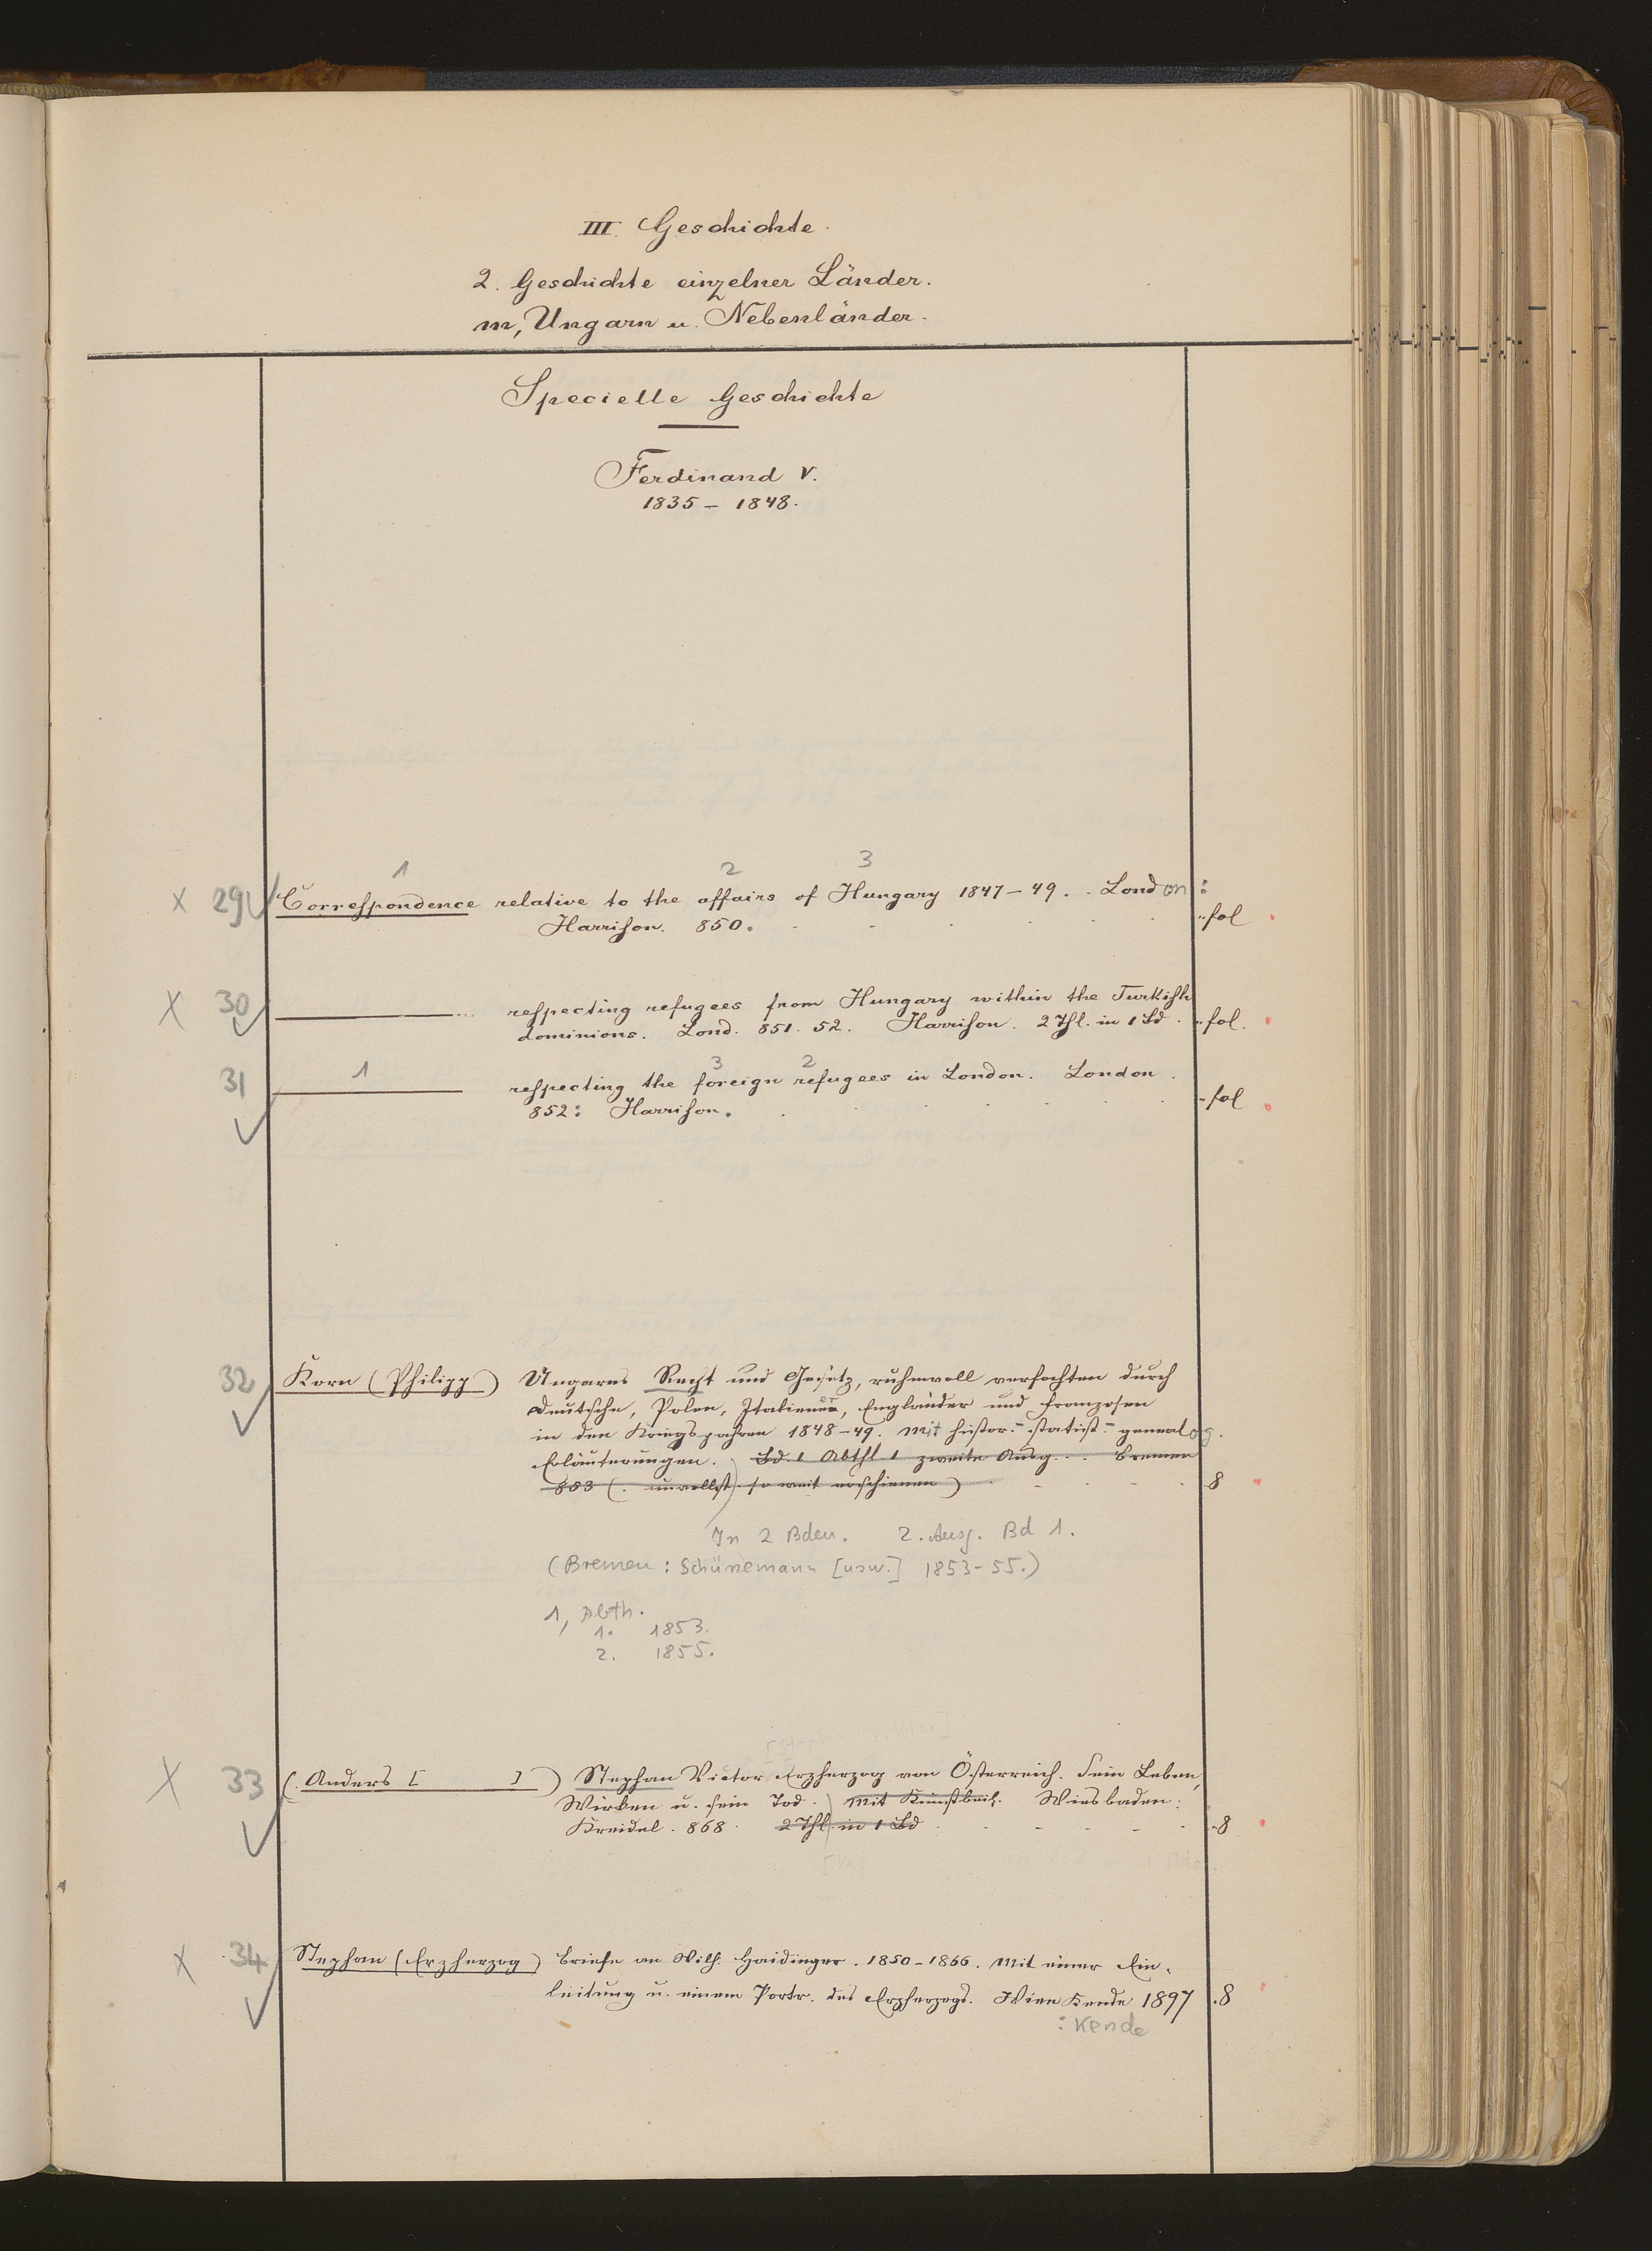 III. Geschichte.
2. Geschichte einzelner Länder.
m, Ungarn u. Nebenländer.
Specielle Geschichte
Ferdinand V.
1835 – 1848.
1 2 3
x 29 Correspondence relative to the affairs of Hungary 1847–49. London :
Harrison. 850. fol
x 30 respecting refugees from Hungary within the Turkish
dominions. Lond. 851. 52. Harrison. 2 Thl. in 1 Bd. fol.
1 3 2
31 respecting the foreign refugees in London. London.
852: Harrison. fol
32 Korn (Philipp) Ungarns Recht und Gesetz, ruhmvoll verfochten durch
Deutsche, Polen, Italiener, Engländer und Franzosen
in den Kriegsjahren 1848–49. Mit histor.- statist.- genealog.
Erläuterungen. Bd. 1 Abthl 1 zweite Ausg. . . Bremen
853 (. unvollst. so weit erschienen) 8
In 2 Bden. 2. Ausg. Bd 1.
(Bremen: Schünemann [usw.] 1853-55.)
1, Abth.
1. 1853.
2. 1855.
x 33 (. Anders [ ] ) Stephan Victor Erzherzog von Österreich. Sein Leben,
Wirken u. sein Tod. Mit Kunstbeil. Wiesbaden:
Kreidel. 868. 2 Thl. in 1 Bd 8
x 34 Stephan (Erzherzog) Briefe an Wilh. Haidinger. 1850–1866. Mit einer Ein-
leitung u. einem Portr. des Erzherzogs. Wien Kende 1897 8
: Kende